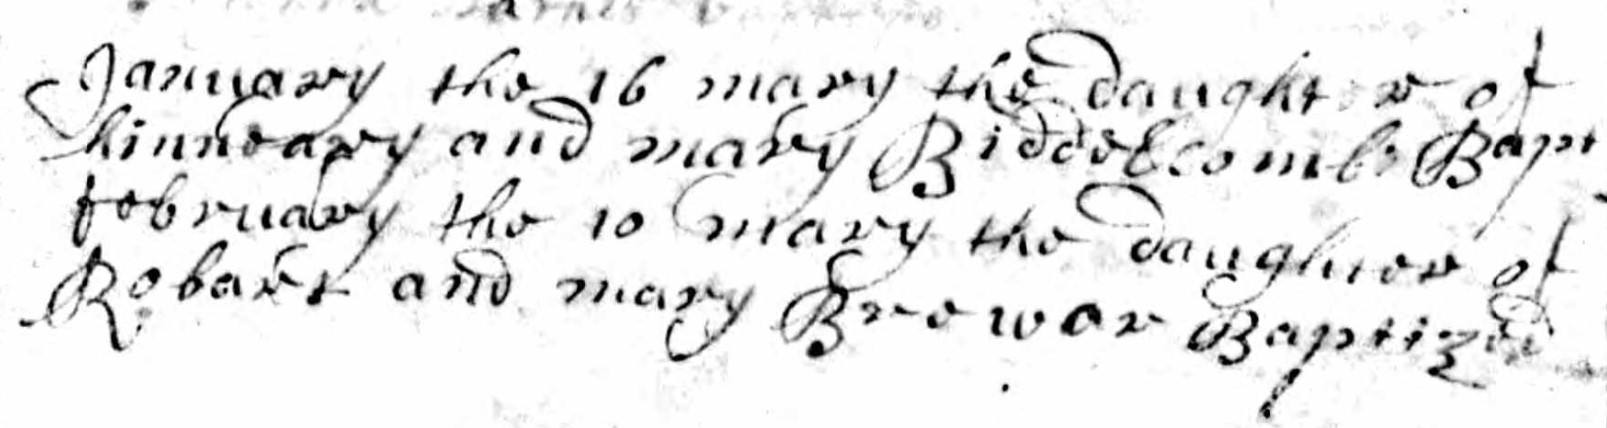 January the 16 mary the daughter of
hinneary and mary Biddelcombe Bapt
february the 10 mary the daughter of
Robart and mary Brewer Baptized